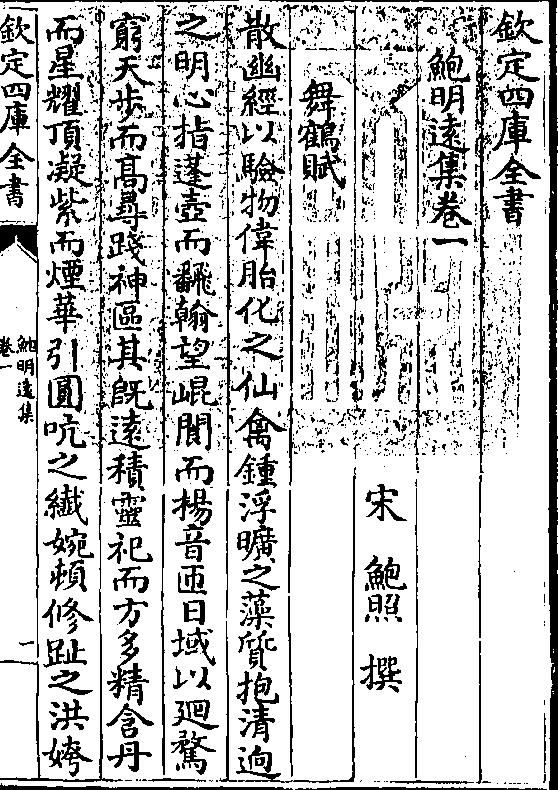 欽定四庫全書
鮑明遠集卷一
宋 鮑照 撰
舞鶴賦
散幽經以驗物偉胎化之仙禽鍾浮曠之藻質抱清逈
之明心指蓬壺而飜翰望崐閬而楊音匝日域以廻騖
窮天步而髙尋踐神區其旣逺積靈祀而方多精含丹
而星耀頂凝紫而煙華引圓吭之纎婉頓修趾之洪姱
欽定四庫全書
鮑明遠集
卷一
一